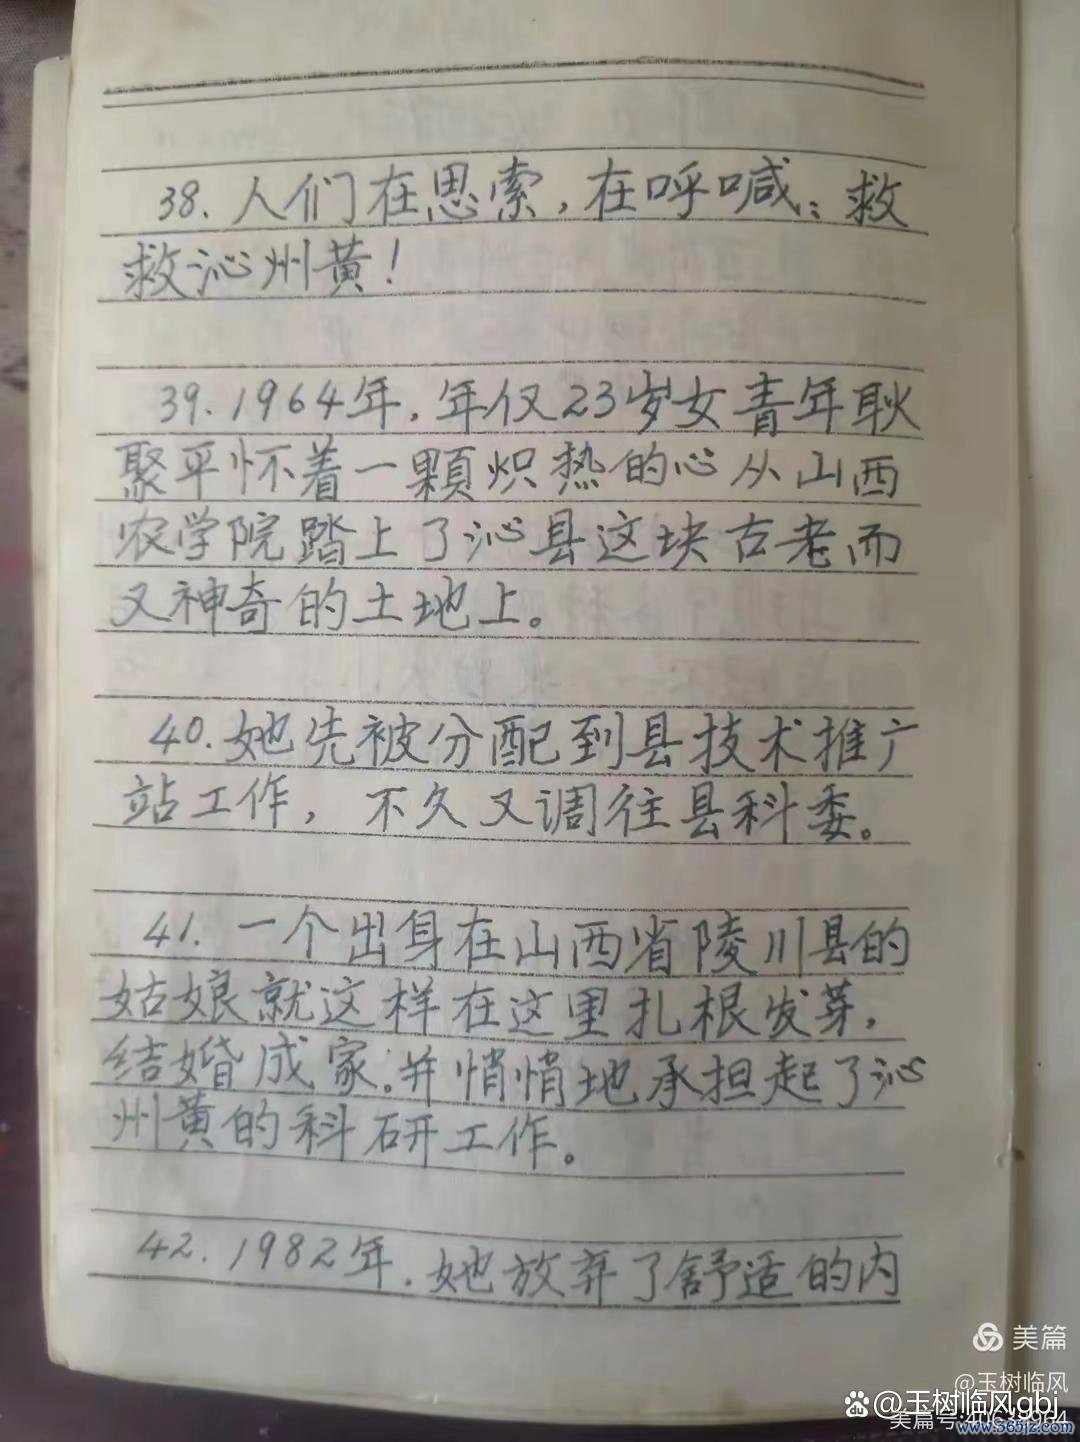 38. 人们在思索，在呼喊：救
救沁州黄！
39. 1964年，年仅23岁女青年耿
聚平怀着一颗炽热的心从山西
农学院踏上了沁县这块古老而
又神奇的土地上。
40. 她先被分配到县技术推广
站工作，不久又调往县科委。
41. 一个出身在山西省陵川县的
姑娘就这样在这里扎根发芽，
结婚成家。并悄悄地承担起了沁
州黄的科研工作。
42. 1982年，她放弃了舒适的内
美篇
@玉树临风
@玉树临风gbj
美篇号
www.365jz.com